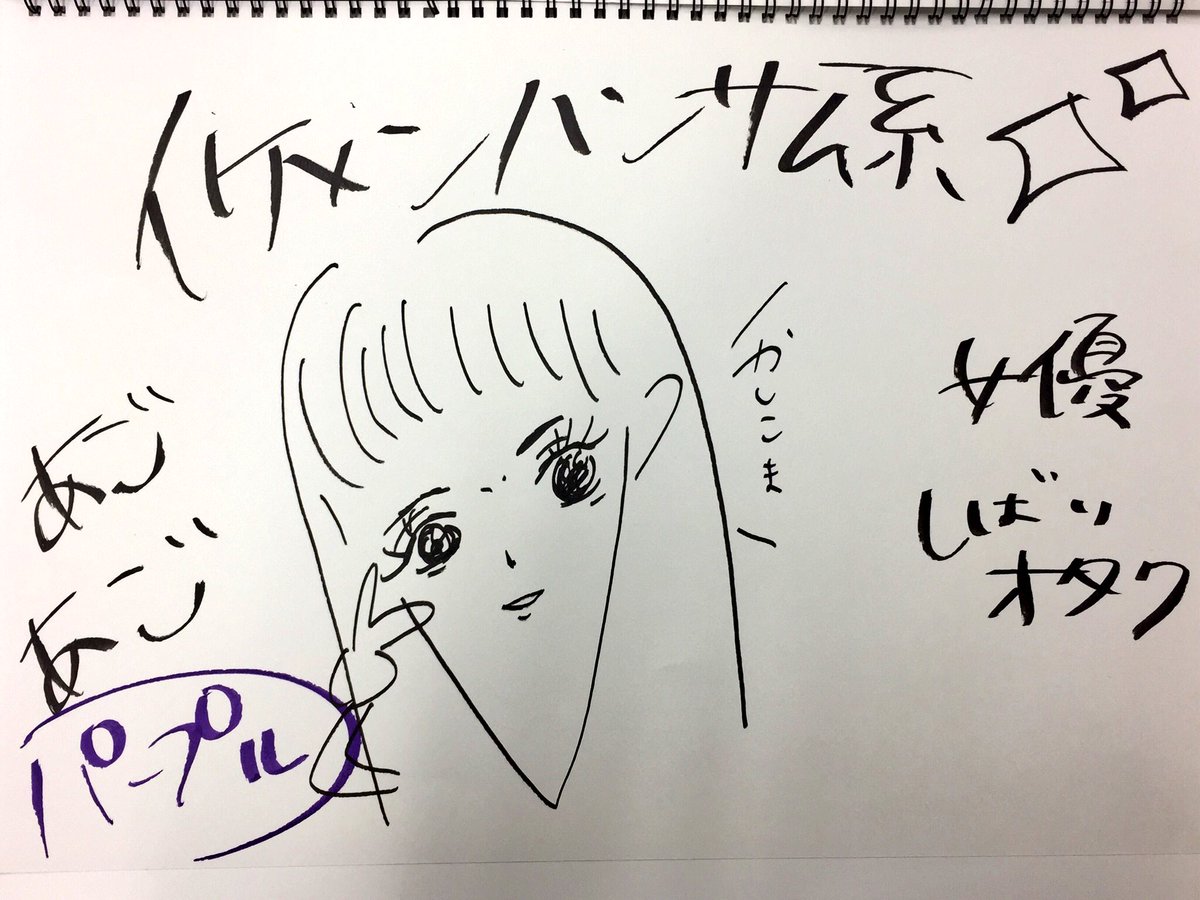 イケメンハンサム系
かしこまー
女優
しばり
オタク
あご
あご
パープル